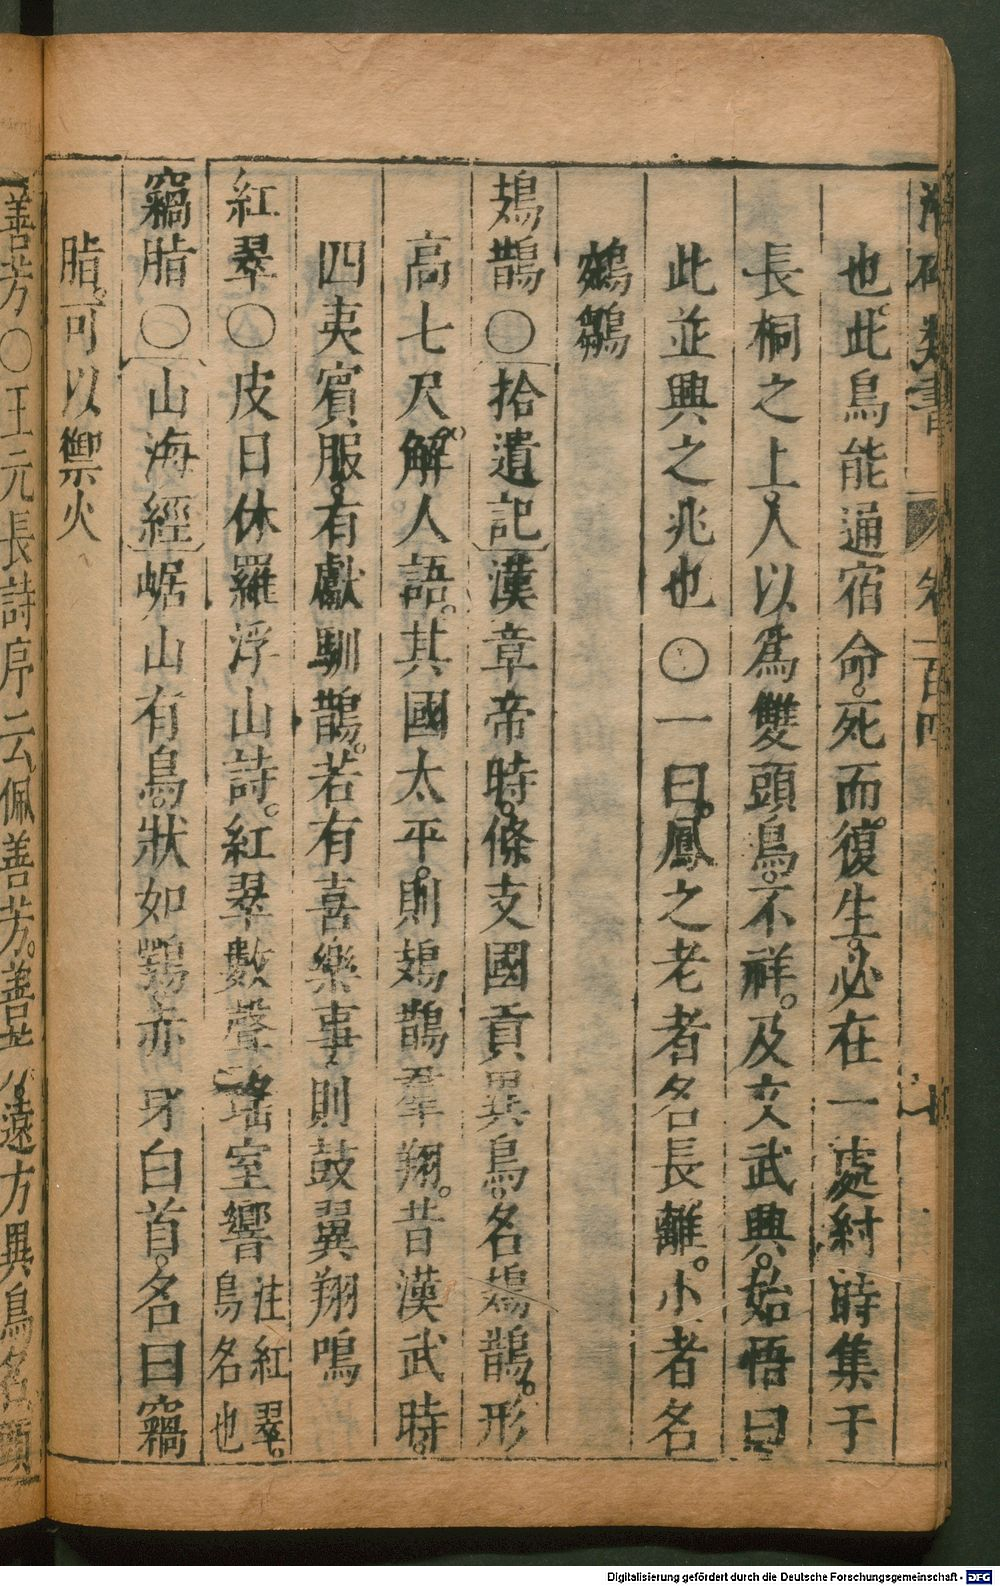 類書 卷一百四
也此鳥能通宿命。死而復生。必在一處。紂時集于
長桐之上。人以爲雙頭鳥。不祥。及文武興。始悟曰
此並興之兆也〇一曰。鳳之老者名長離。小者名
鵷鶵
鳷鵲〇拾遺記漢章帝時。條支國貢異鳥。名鳷鵲。形
高七尺。解人語。其國太平。則鳷鵲羣翔。昔漢武時。
四夷賓服。有獻馴鵲。若有喜樂事。則鼓翼翔鳴
紅翠〇皮日休羅浮山詩。紅翠數聲瑤室響注紅翠。鳥名也
竊脂〇山海經崌山有鳥。狀如鴞亦身白首。名曰竊
脂。可以禦火
善芳〇王元長詩序云佩善芳。善芳遠方異鳥名頭
Digitalisierung gefördert durch die Deutsche Forschungsgemeinschaft - DFG